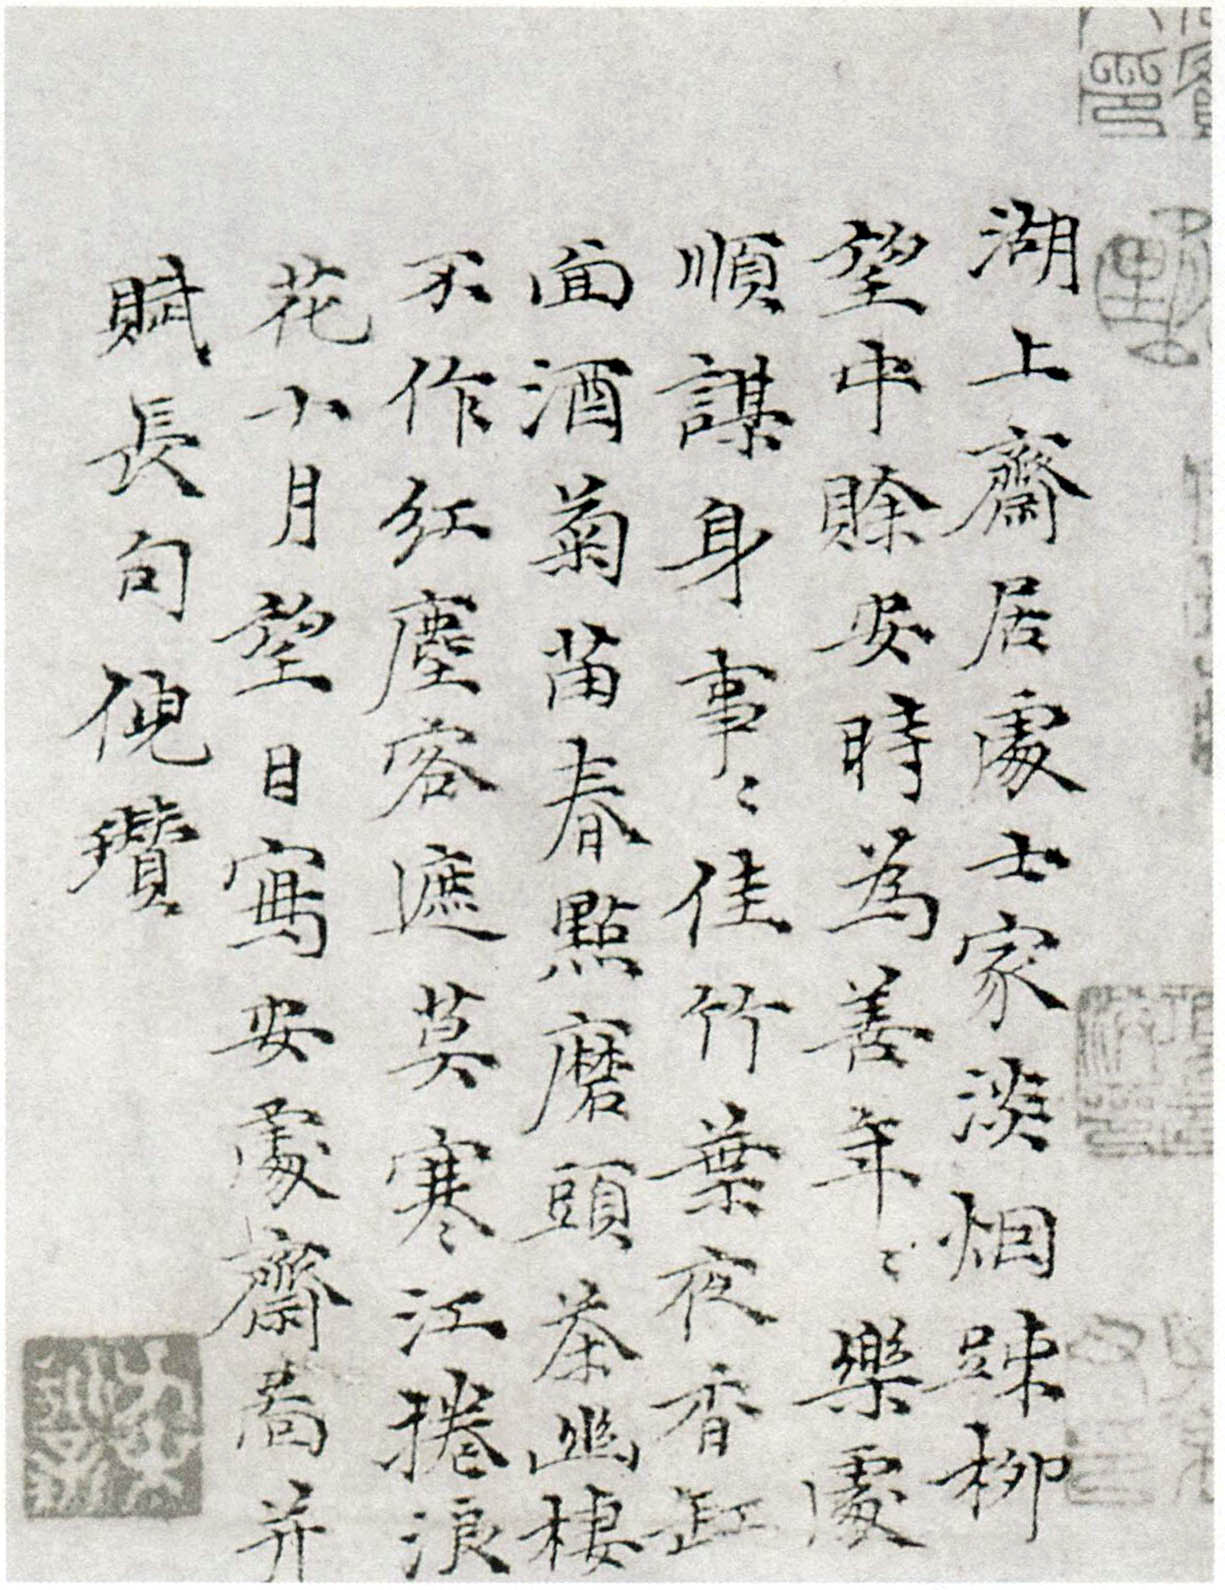 湖上齋居處士家淡烟疎柳
望中賖安時為善年〻樂處
順謀身事〻佳竹葉夜香缸
面酒菊苗春點磨頭茶幽棲
不作紅塵客遮莫寒江捲浪
花十月望日寫安處齋啚并
賦長句倪瓚